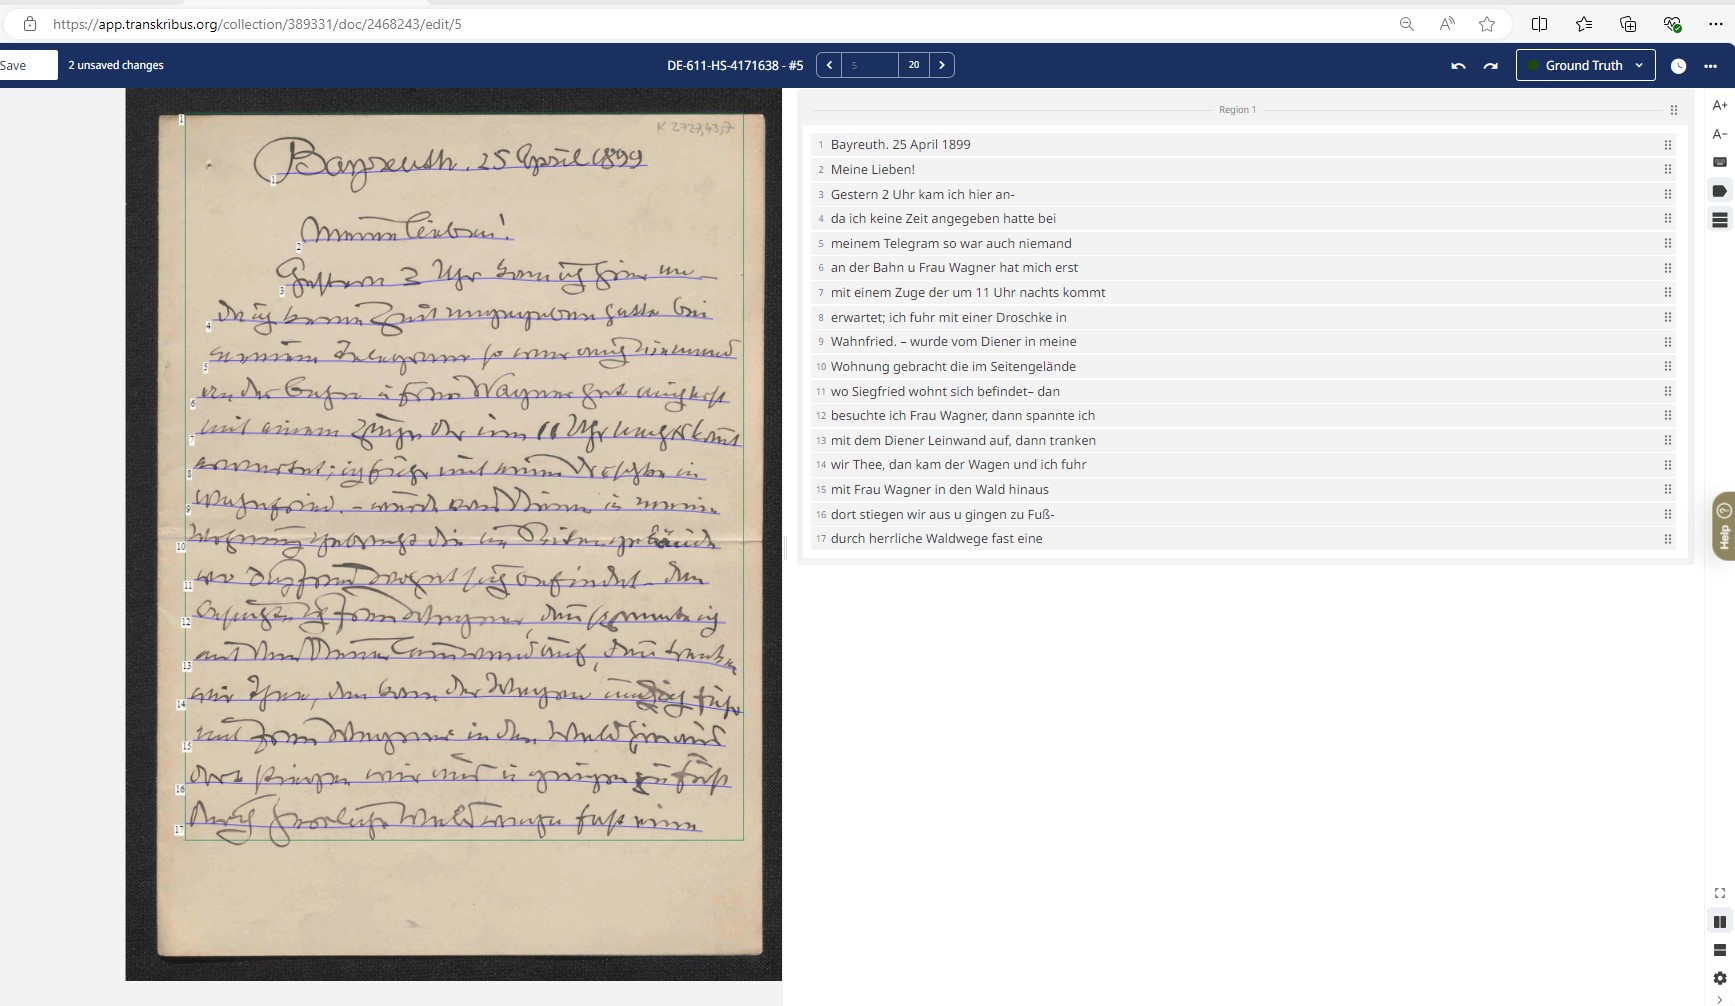 https://app.transkribus.org/collection/389331/doc/2468243/edit/5
Save
2 unsaved changes
DE-611-HS-4171638 - #5
5
20
Ground Truth
K 2727,43,7
Bayreuth. 25 April 1899
Meine Lieben!
Gestern 2 Uhr kam ich hier an-
da ich keine Zeit angegeben hatte bei
meinem Telegram so war auch niemand
an der Bahn u Frau Wagner hat mich erst
mit einem Zuge der um 11 Uhr nachts kom̄t
erwartet; ich fuhr mit einer Droschke in
Wahnfried. – wurde vom Diener in meine
Wohnung gebracht die im Seitengebäude
wo Siegfried wohnt sich befindet – dan
besuchte ich Frau Wagner, dan̄ spannte ich
mit dem Diener Leinwand auf, dan̄ tranken
wir Thee, dan kam der Wagen und ich fuhr
mit Frau Wagner in den Wald hinaus
dort stiegen wir aus u gingen zu Fuß
durch herrliche Waldwege fast eine
1
2
3
4
5
6
7
8
9
10
11
12
13
14
15
16
17
1
Region 1
1 Bayreuth. 25 April 1899
2 Meine Lieben!
3 Gestern 2 Uhr kam ich hier an-
4 da ich keine Zeit angegeben hatte bei
5 meinem Telegram so war auch niemand
6 an der Bahn u Frau Wagner hat mich erst
7 mit einem Zuge der um 11 Uhr nachts kommt
8 erwartet; ich fuhr mit einer Droschke in
9 Wahnfried. – wurde vom Diener in meine
10 Wohnung gebracht die im Seitengelände
11 wo Siegfried wohnt sich befindet– dan
12 besuchte ich Frau Wagner, dann spannte ich
13 mit dem Diener Leinwand auf, dann tranken
14 wir Thee, dan kam der Wagen und ich fuhr
15 mit Frau Wagner in den Wald hinaus
16 dort stiegen wir aus u gingen zu Fuß-
17 durch herrliche Waldwege fast eine
A+
A-
Help